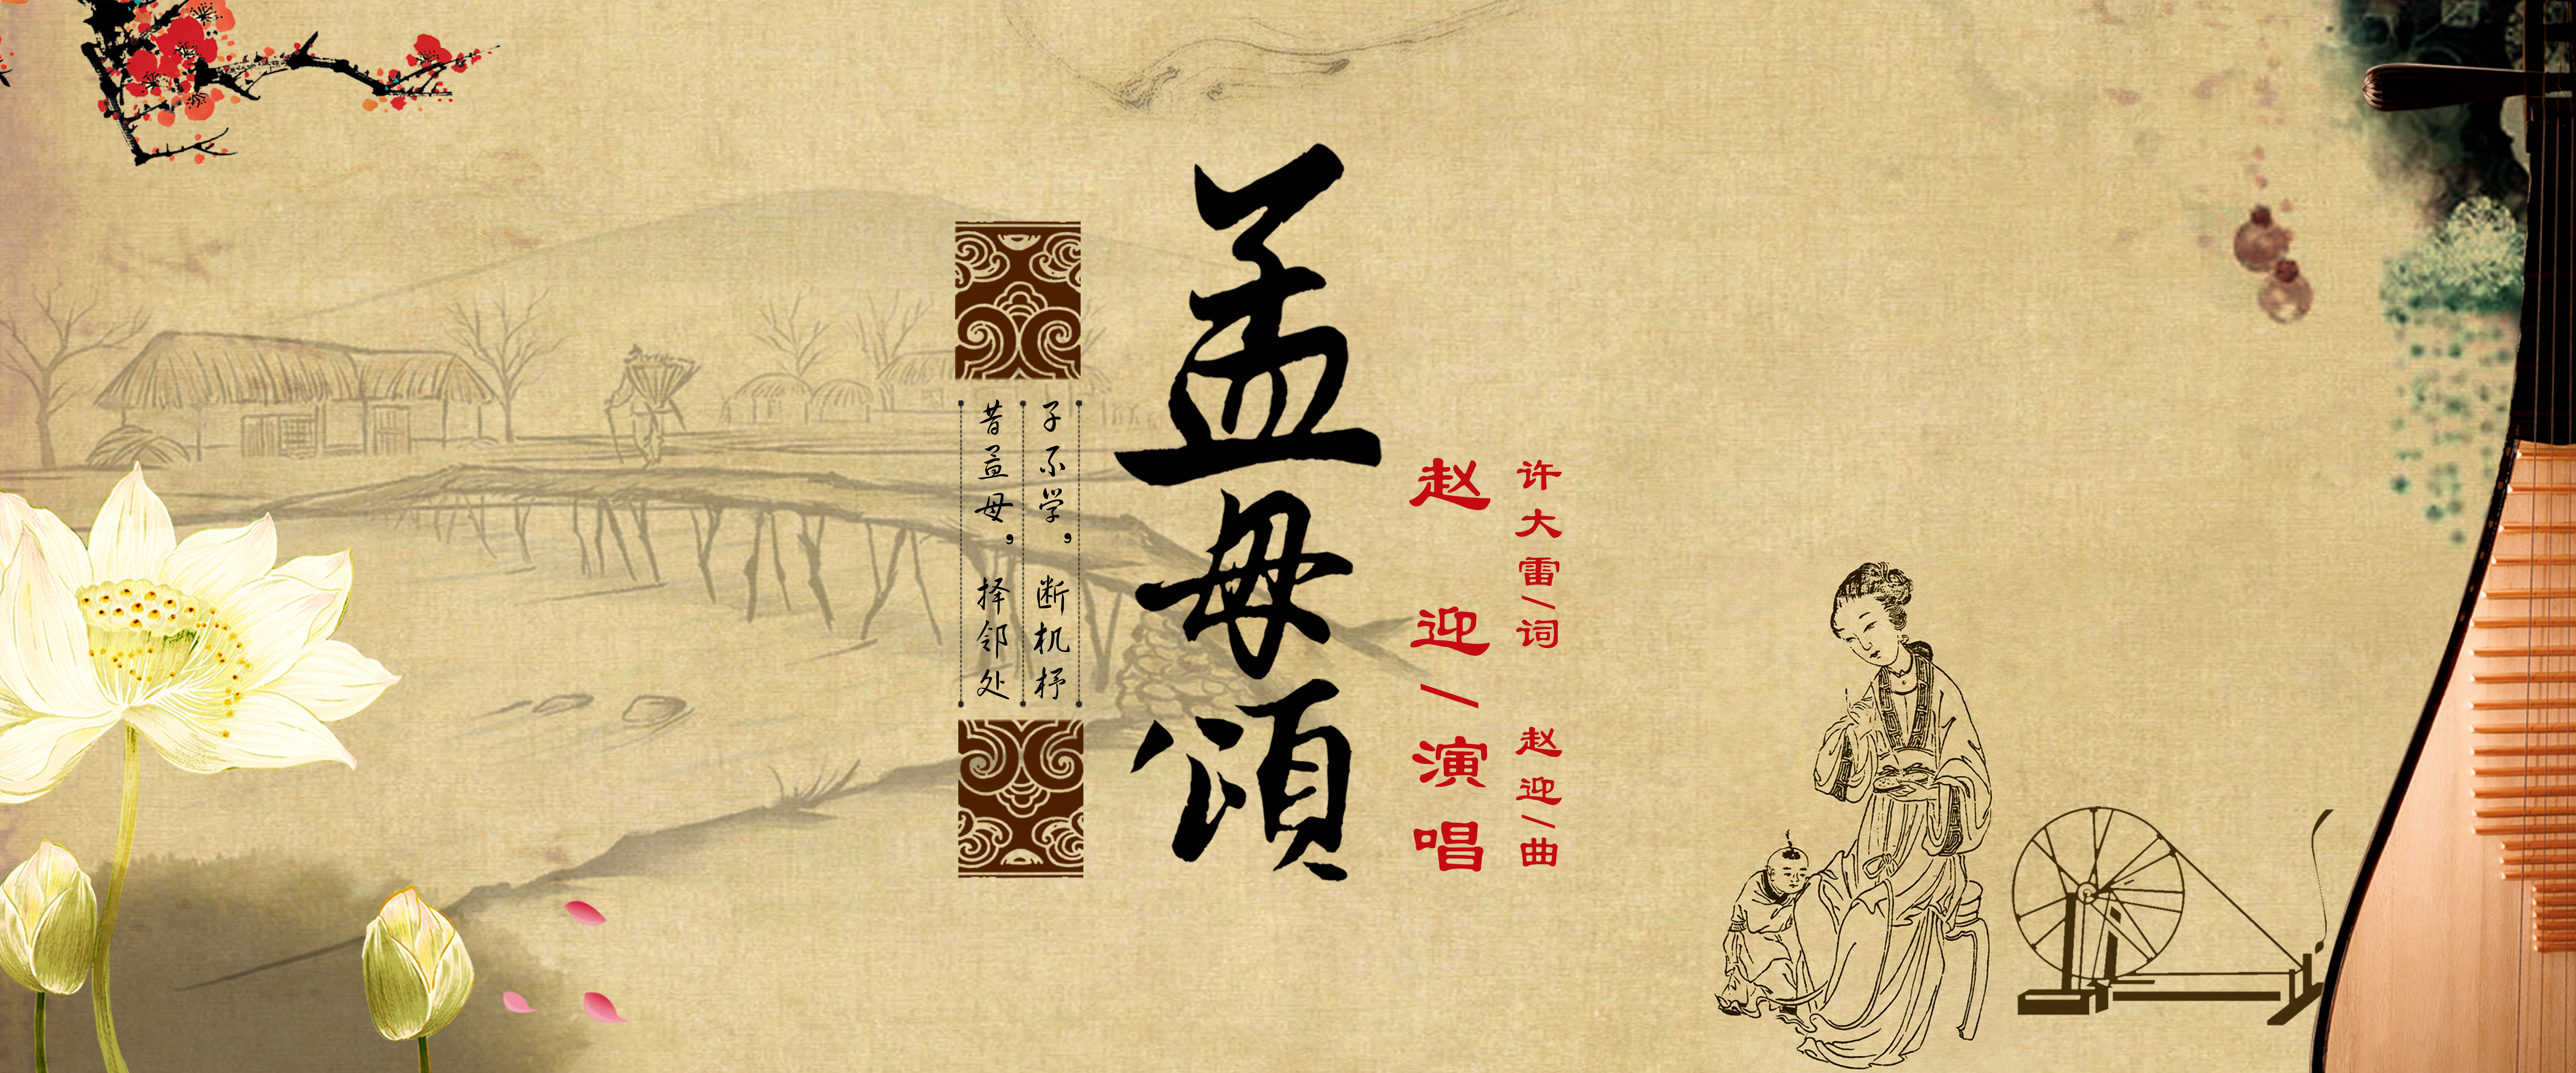 昔孟母，择邻处
子不学，断机杼
孟母頌
赵迎/演唱
许大雷/词 赵迎/曲